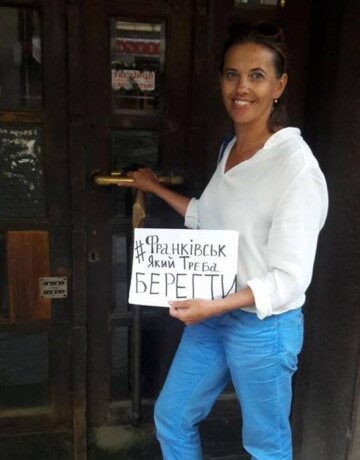 #Франківськ
який Треба
БЕРЕГТИ